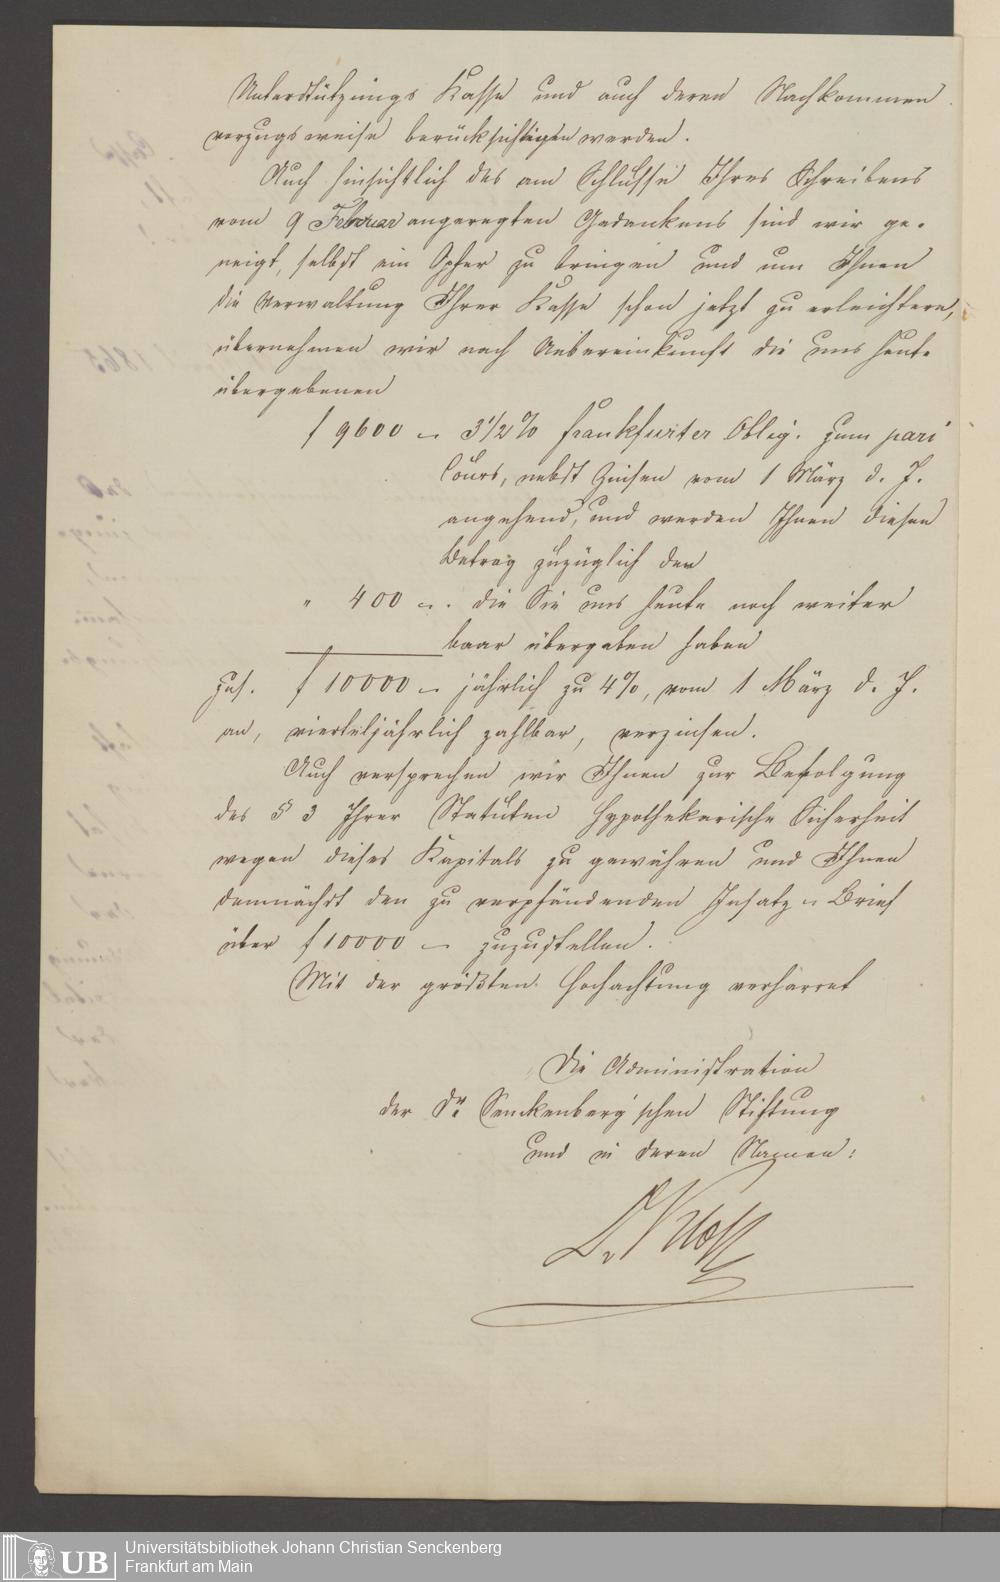 Unterstützungs Kasse und auch deren Nachkommen
vorzugsweise berücksichtigen werden.
Auch hinsichtlich des am Schlusse Ihres Schreibens
vom 9 Februar angeregten Gedankens sind wir ge-
neigt, selbst ein Opfer zu bringen und um Ihnen
die Verwaltung Ihrer Kasse schon jetzt zu erleichtern,
übernehmen wir nach Uebereinkunft die uns heute
übergebenen
f 9600 – 3 1/2 % Frankfurter Oblig. zum pari
Cours, nebst Zinsen vom 1 März d. J.
angehend, und werden Ihnen diesen
Betrag zuzüglich der
" 400 –. die Sie uns heute noch weiter
baar übergaben haben
zus. f 10000 – jährlich zu 4%, vom 1 März d. J.
an, vierteljährlich zahlbar, verzinsen.
Auch versprechen wir Ihnen zur Befolgung
des § 3 Ihrer Statuten hypothekarische Sicherheit
wegen dieses Kapitals zu gewähren und Ihnen
demnächst den zu verpfändenden Insatz-Brief
über f 10000 – zuzustellen.
Mit der größten Hochachtung verharret
Die Administration
der Dr. Senckenberg'schen Stiftung
und in deren Namen:
Dr. Kloß
Universitätsbibliothek Johann Christian Senckenberg
UB Frankfurt am Main